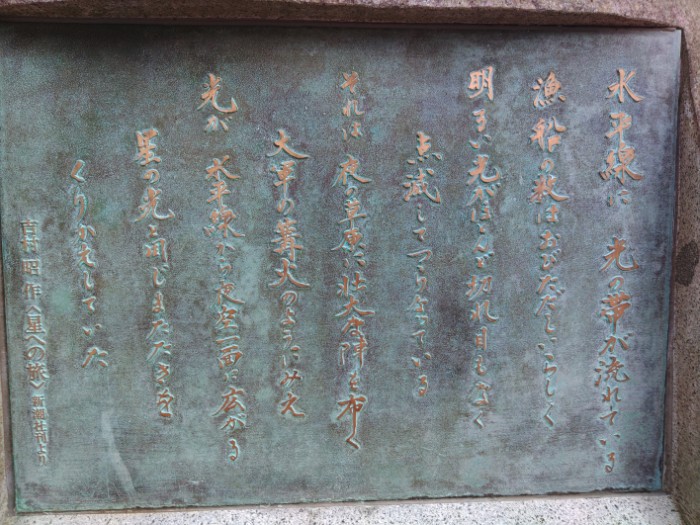 水平線に 光の帯が流れている
漁船の数はおびただしいらしく
明るい光がほとんど切れ目もなく
点滅してつらなっている
それは 夜の草原に壮大な陣を布く
大軍の篝火のようにみえ
光が 水平線から夜空一面に広がる
星の光と同じまたたきを
くりかえしていた
吉村 昭 作〈星への旅〉新潮社刊より